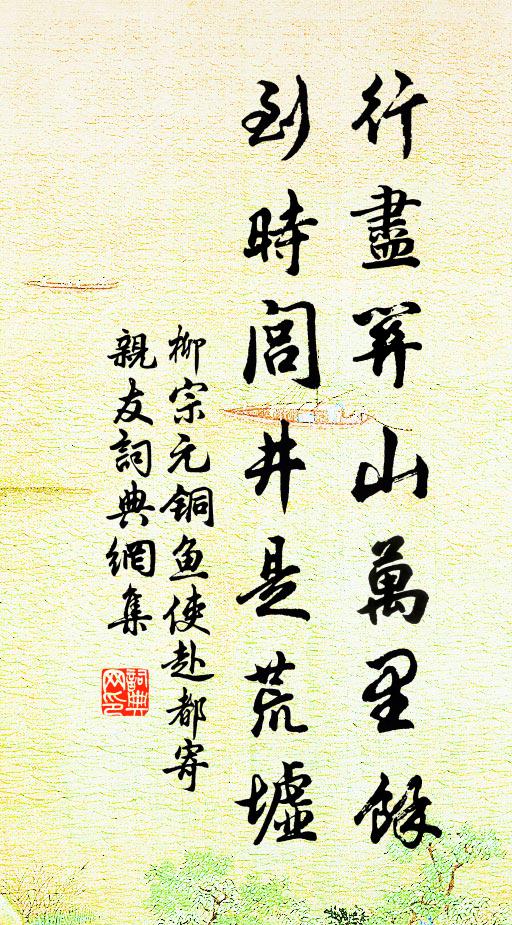 行盡關山萬里餘
到時閭井是荒墟
柳宗元銅魚使赴都寄
親友詞典網集
詞典
网印